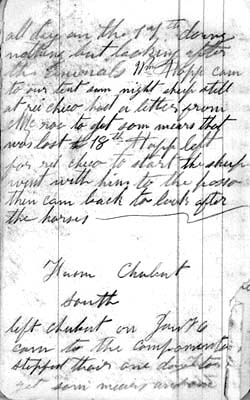 all day on the 17th doing
nothing but looking after
the animals Wm Hopp cam
to our tent sam night sheep still
at rio chico had a letter from
to get som mears that
was lost 18th Hopp left
for rio chico to start the sheep
went with him to the
then cam back to look after
the horses
From Chubut
South
left Chubut on Jan 6
cam to the
stopped thair one day to
get som mears